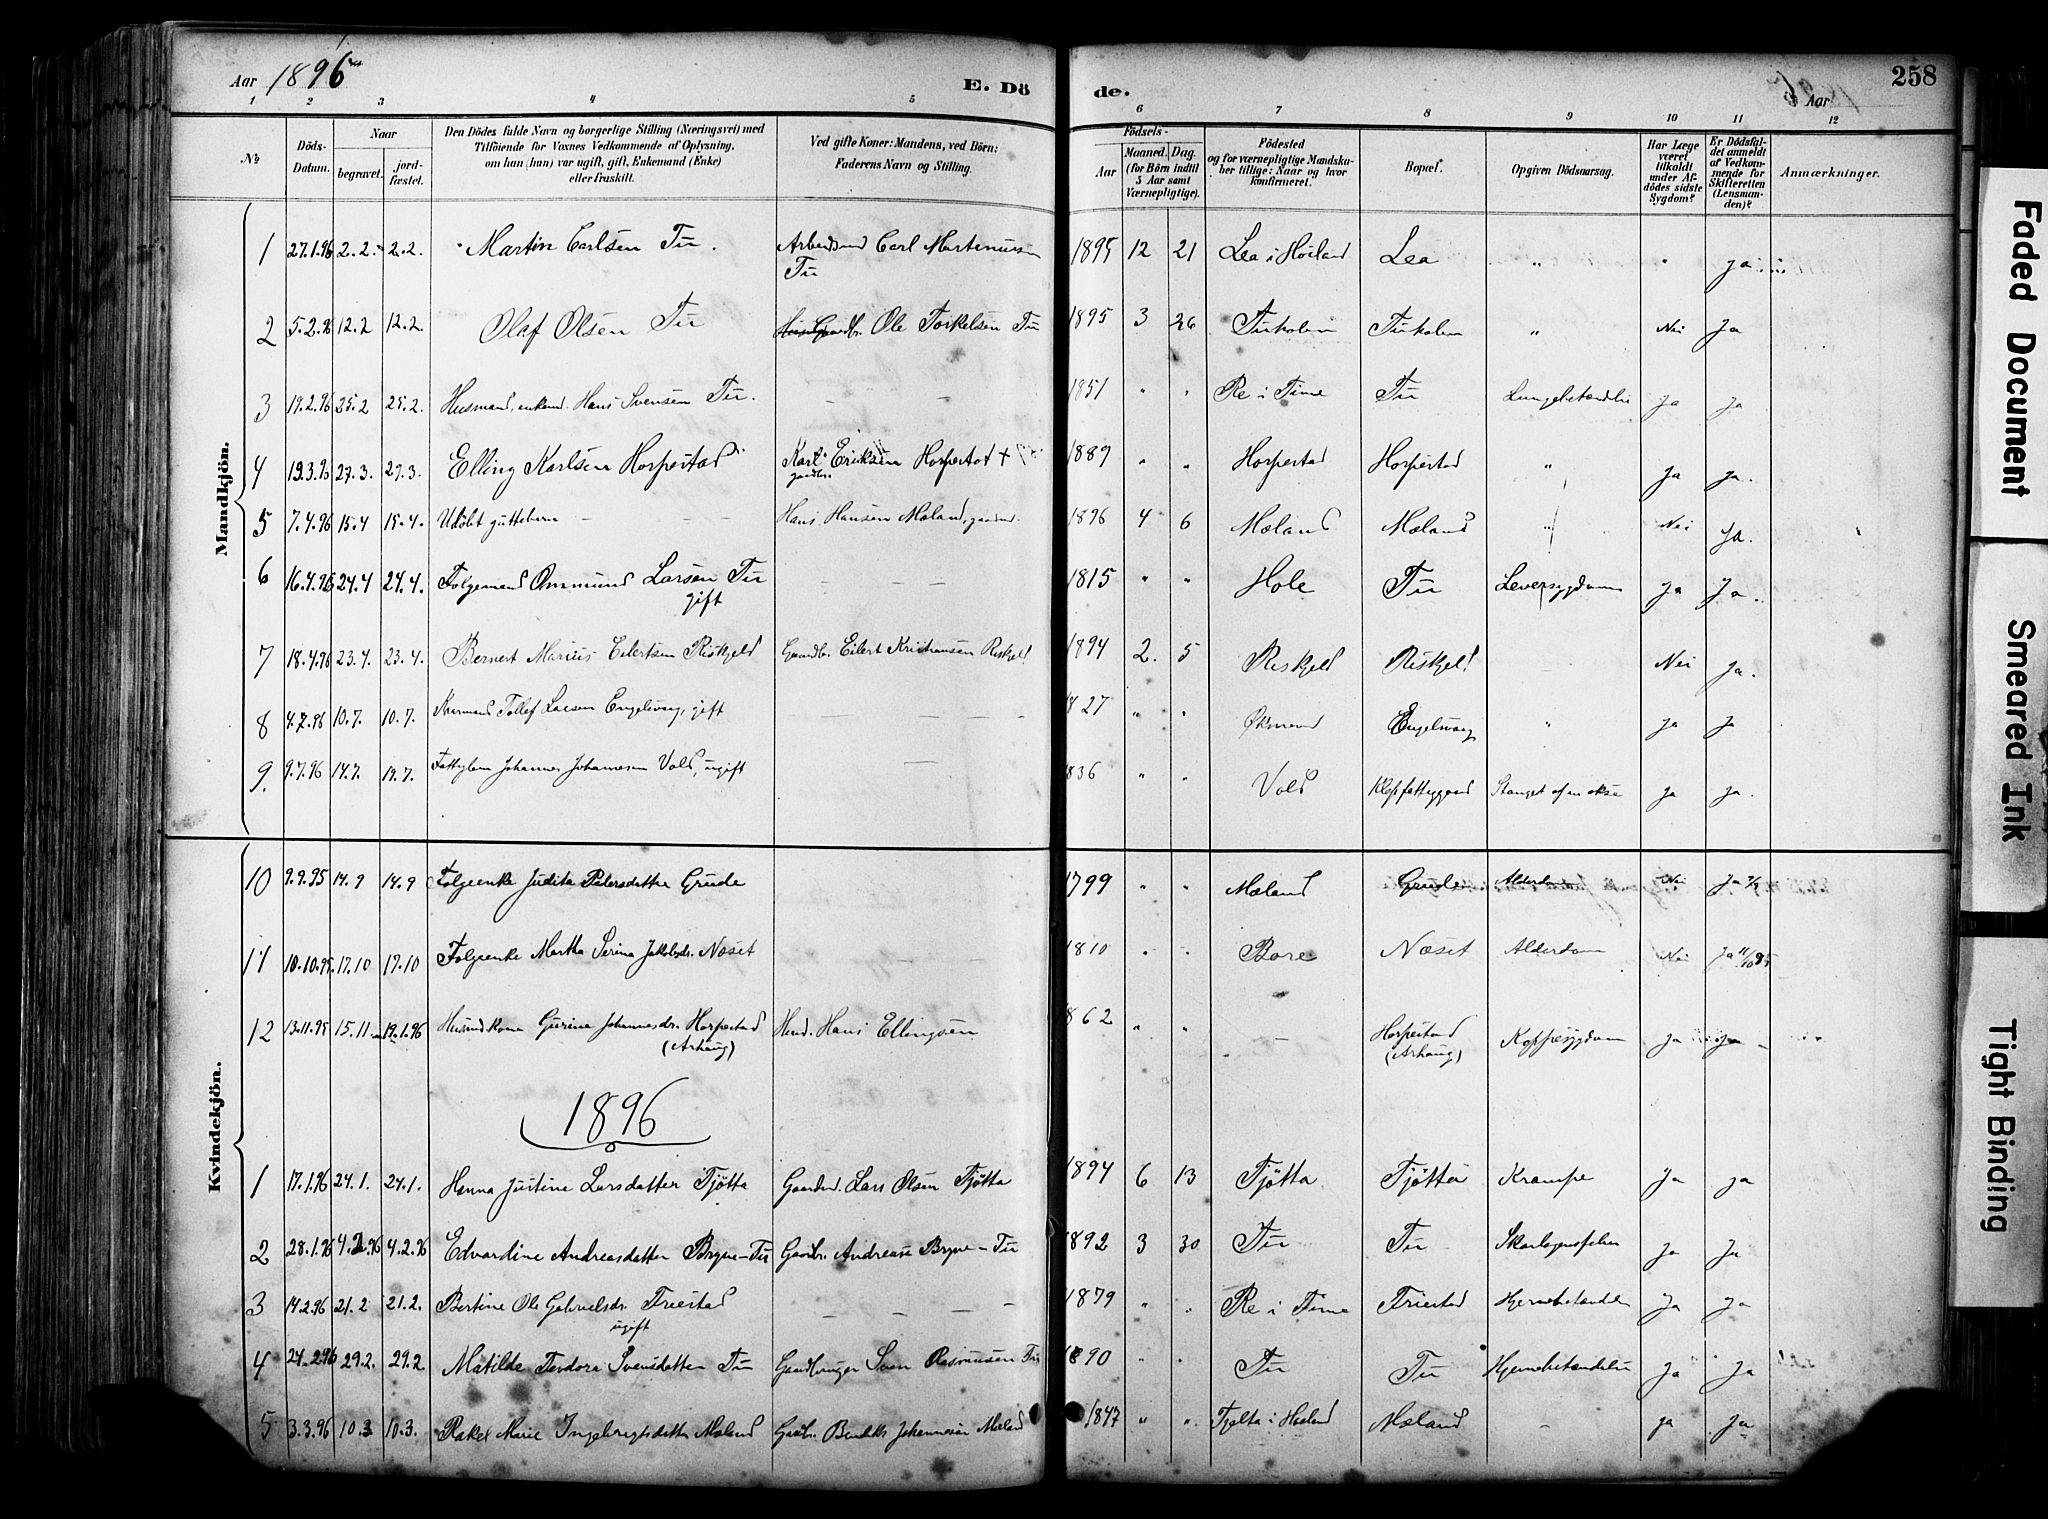 Aar 1896
E. Dö
de.
Aar 1896
258
1 2 3 4 5 6 7 8 9 10 11 12
No.
Döds-Datum.
Naar
begravet.
jord-fæstet.
Den Dödes fulde Navn og borgerlige Stilling (Næringsvei) med
Tilföiende for Voxnes Vedkommende af Oplysning,
om han (hun) var ugift, gift, Enkemand (Enke)
eller fraskilt.
Ved gifte Koner: Mandens, ved Börn:
Faderens Navn og Stilling.
Födsels-
Aar
Maaned. Dag.
(for Börn indtil
5 Aar samt
Værnepligtige).
Födested
og for værnepligtige Mandska-
ber tillige: Naar og hvor
konfirmeret.
Bopæl.
Opgiven Dödsaarsag.
Har Læge
været
tilkaldt
under Af-
dödes sidste
Sygdom?
Er Dödsfal-
det anmeldt
af Vedkom-
mende for
Skifteretten
(Lensman-
den)?
Anmærkninger.
Mandkjön.
1 27.1.96 2.2. 2.2. Martin Carlsen Tu. Arbeidsmd Carl Martenius Tu 1895 12 21 Lea i Høiland Lea " " ja
2 5.2.96 12.2 12.2. Olaf Olsen Tu Gaardbr. Ole Torkelsen Tu 1895 3 26 Tukolen Tukolen " Nei Ja
3 19.2.96 25.2 25.2. Husmand, enkemd. Hans Svensen Tu. — — 1851 " " Re i Time Tu Lungebetændelse Ja Ja
4 19.3.96 27.3. 27.3. Elling Karlsen Horpestad Karl Eriksen Horpestad + gaardbr. 1889 " " Horpestad Horpestad " Ja Ja.
5 7.4.96 15.4 15.4. Udöbt guttebarn — — Hans Hansen Mæland, gaardmd. 1896 4 6 Mæland Mæland " Nei Ja.
6 16.4.96 24.4 24.4. Folgemand Osmund Larsen Tu gift — — 1815 " " Hole Tu Leversygdom Ja Ja.
7 18.4.96 23.4. 23.4. Bernert Marius Eilertsen Riskjeld Gaardbr. Eilert Kristiansen Riskjeld 1894 2. 5 Riskjeld Riskjeld — Nei Ja.
8 4.7.96 10.7. 10.7. Kaarmand Tollef Larsen Engelsvaag, gift — — — — 1827 " " Øksnevad Engelsvaag " Ja Ja
9. 9.7.96 14.7. 19.7. Fattiglem Johannes Johannesen Vold, ugift — 1836 " " Vold Klep fattiggaard Stanget af en okse Ja Ja.
Kvindekjön.
10 9.9.95 14.9 14.9 Folgeenke Judita Pedersdatter Grude 1799 " " Mæland Grude Alderdom Nei Ja
11 10.10.95 17.10 17.10 Folgeenke Martha Serina Jakobsdr. Næset — 1810 " " Bore Næset Alderdom Nei Ja 11/10 95
12 13.11.95 15.11 19.1.96 Husmdkone Gurina Johannesdr. Horpestad (Arhaug) Husmd. Hans Ellingsen 1862 " " — Horpestad (Arhaug) Koppesygdom Ja Ja
1896
1 17.1.96 24.1. 24.1. Hanna Justine Larsdatter Tjøtta Gaardmd. Lars Olsen Tjøtta 1894 6 13 Tjøtta Tjøtta Krampe Ja Ja
2 28.1.96 4.2.96 4.2.96 Edvardine Andreasdatter Bryne-Tu Gaardbr. Andreas Bryne-Tu 1892 3 30 Tu Tu Skarlagensfeber Ja Ja
3 14.2.96 21.2 21.2. Bertine Ole Gabrielsdr. Friestad ugift — — — 1879 " " Re i Time Friestad Hjernebetændelse Ja Ja
4 24.2.96 29.2. 29.2 Matilde Teodora Svensdatter Tu Gaardbruger Sven Rasmusen Tu 1890 " " Tu Tu Hjernebetændelse Ja Ja
5 3.3.96 10.3 10.3. Rakel Marie Ingebregtsdatter Mæland Gaardbr. Bendiks Johannesen Mæland 1847 " " Tjelta i Haaland Mæland — Ja Ja
Faded Document
Smeared Ink
Tight Binding